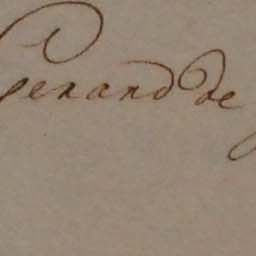 Gerard de